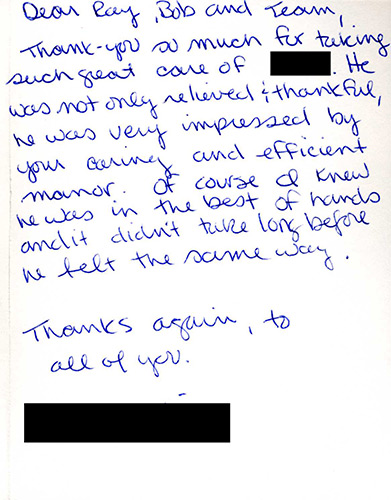 Dear Ray, Bob and Team,
Thank-you so much for taking
such great care of . He
was not only relieved & thankful,
he was very impressed by
your caring and efficient
manor. Of course I knew
he was in the best of hands
and it didn't take long before
he felt the same way.
Thanks again, to
all of you.